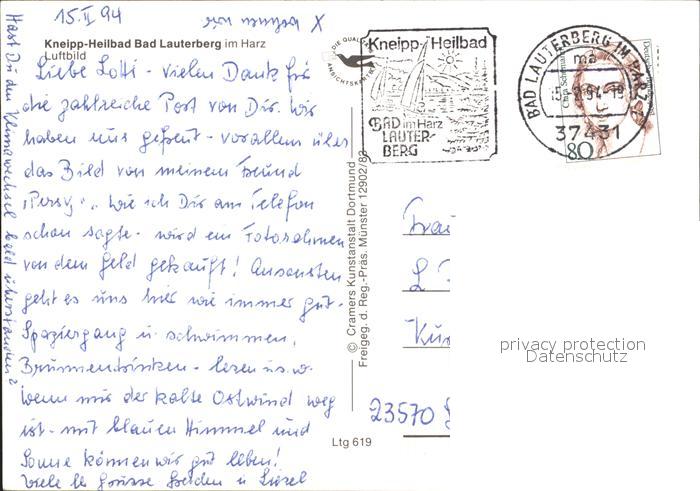 15.II 94
Kneipp-Heilbad Bad Lauterberg im Harz
Luftbild
Liebe Lotti - vielen Dank für
die zahlreiche Post von Dir. Wir
haben uns gefreut - vorallem über
das Bild von meinem Freund
"Persy". Wie ich Dir am Telefon
schon sagte - wird ein Fotorahmen
von dem Geld gekauft! Ansonsten
geht es uns hier wie immer gut -
Spaziergang u. schwimmen,
Brunnentrinken - lesen u.s.w.
Wenn nur der kalte Ostwind weg
ist - mit blauen Himmel und
Sonne können wir gut leben!
Viele Grüsse beiden u
Hast Du den Klimawechsel bald überstanden?
DIE QUALITÄTS
ANSICHTSKARTE
Kneipp-Heilbad
BAD im Harz
LAUTER-
BERG
BAD LAUTERBERG IM HARZ
ma
37431
Deutsche
80
© Cramers Kunstanstalt Dortmund
Freigeg. d. Reg.-Präs. Münster 12902/83
Frau
L
Kur
23570
privacy protection
Datenschutz
Ltg 619